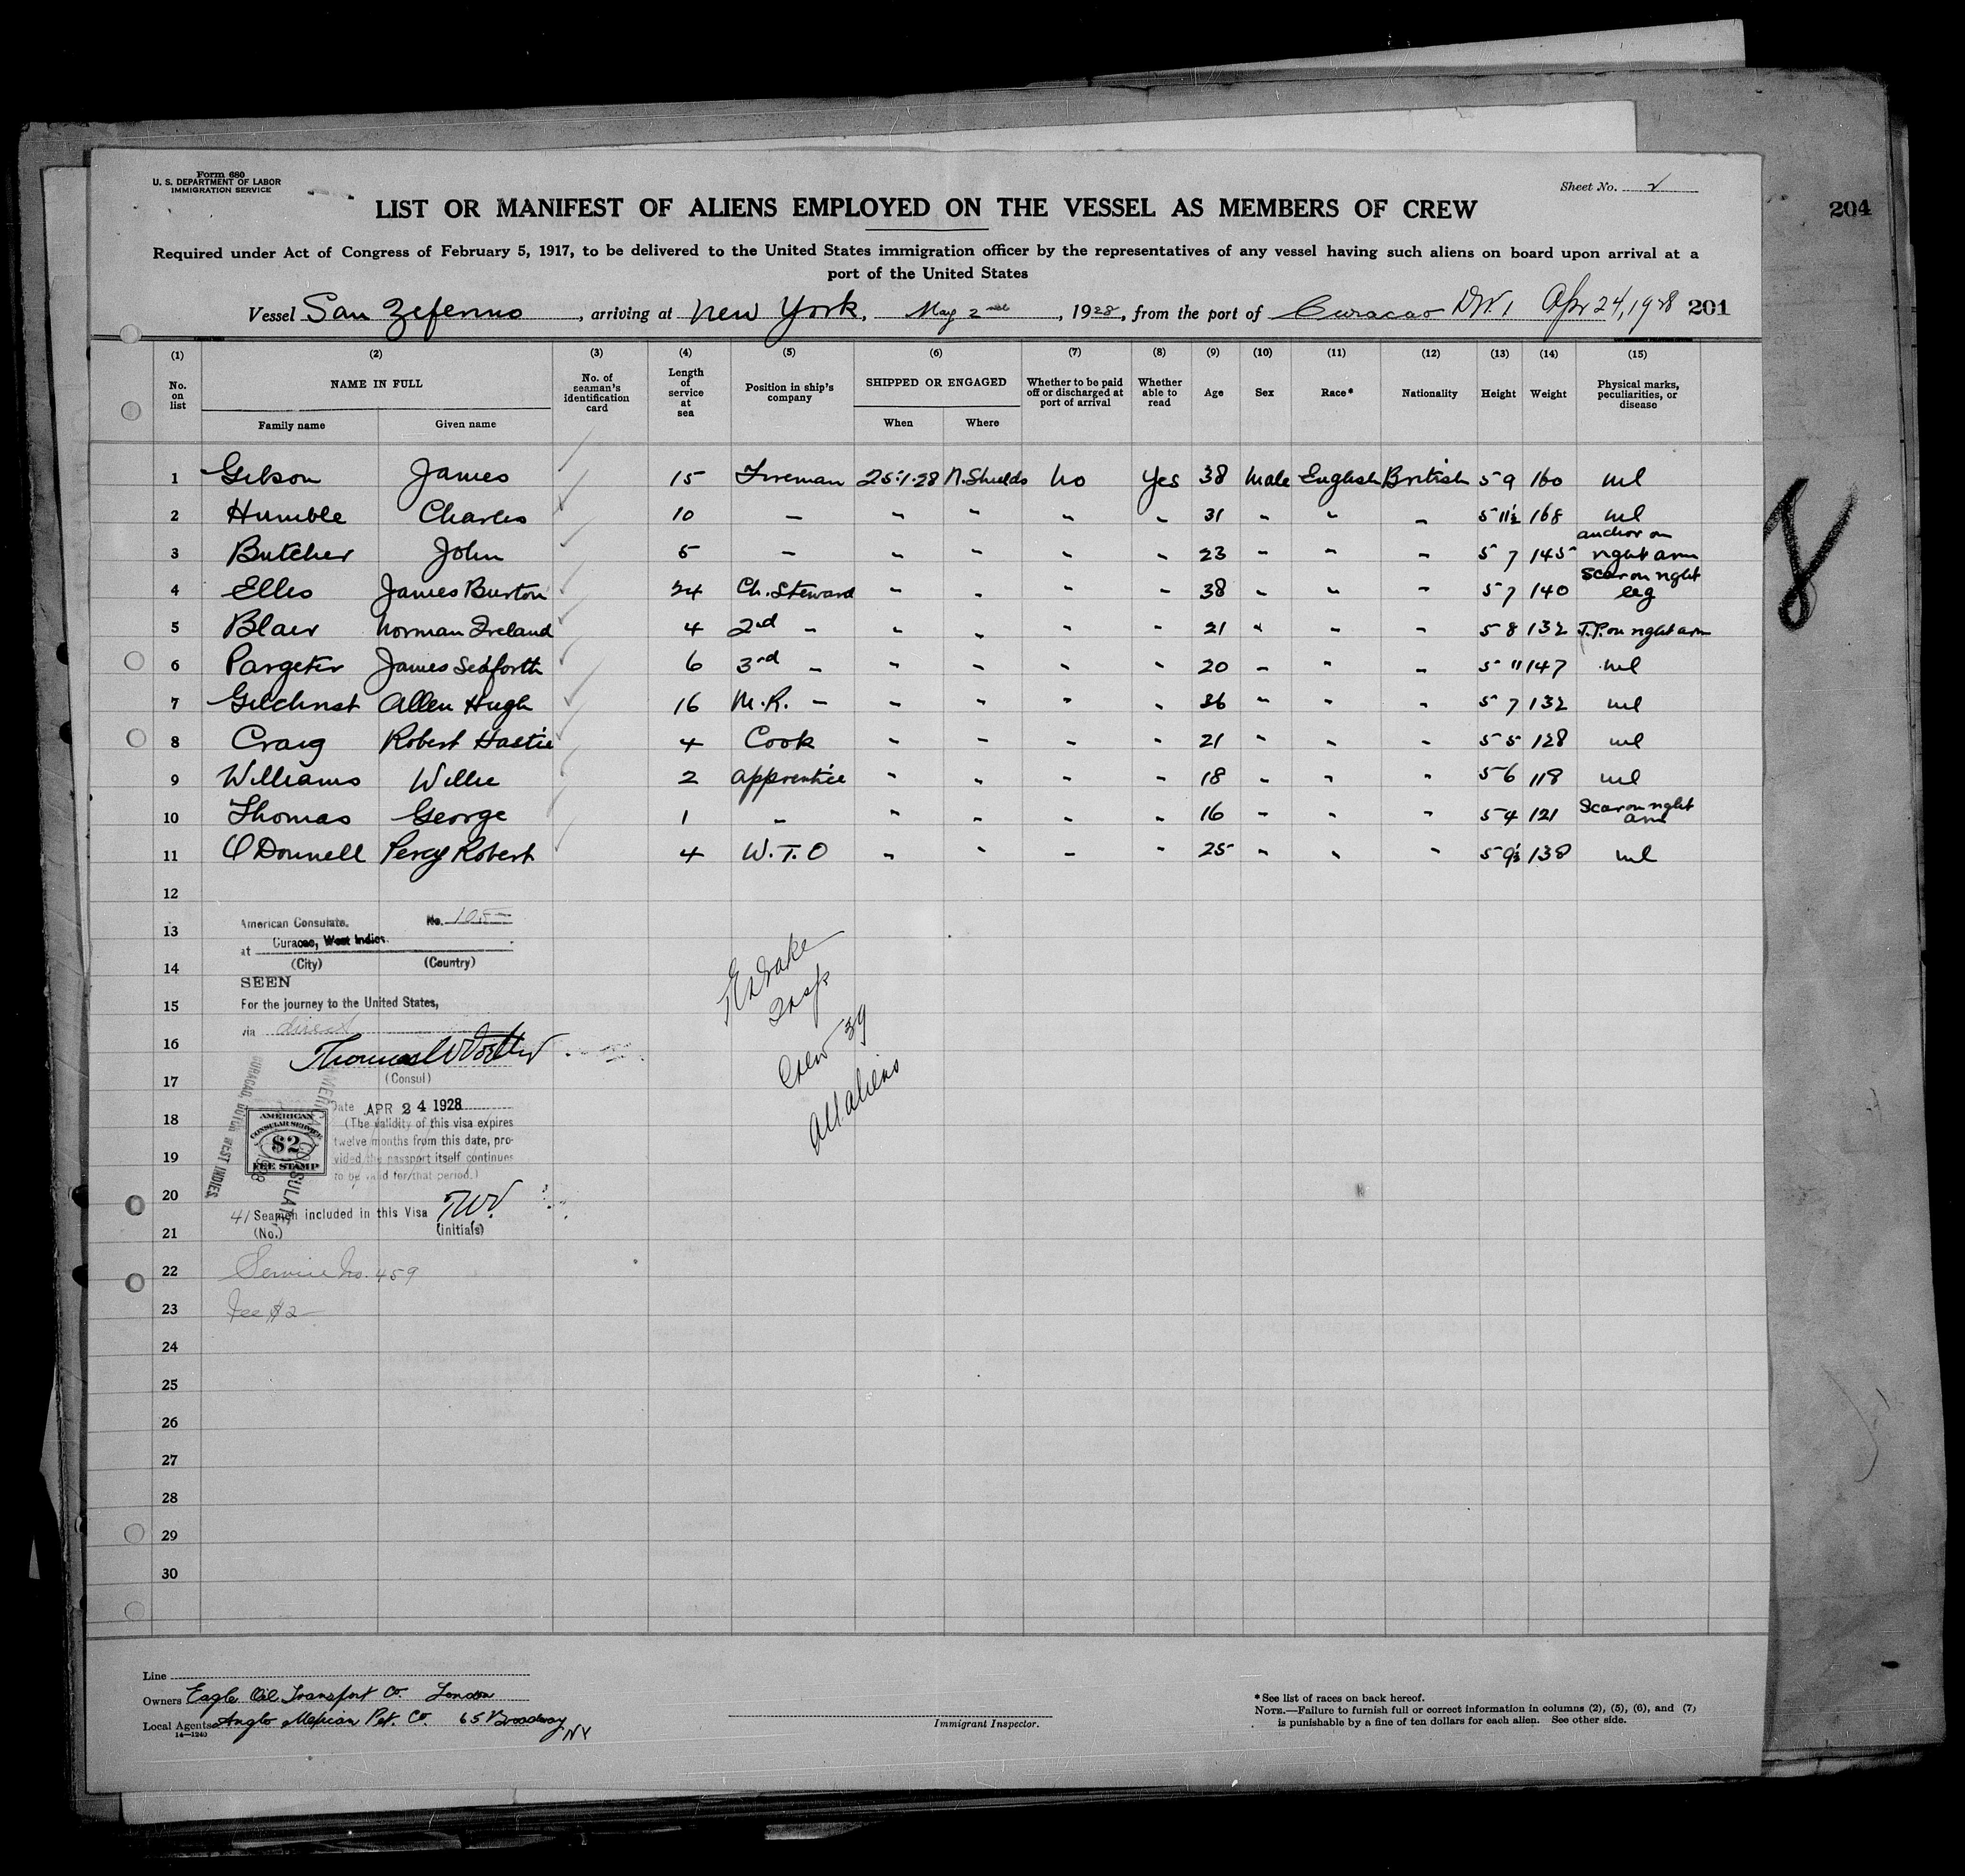 Form 680
U. S. DEPARTMENT OF LABOR
IMMIGRATION SERVICE
Sheet No. 2
LIST OR MANIFEST OF ALIENS EMPLOYED ON THE VESSEL AS MEMBERS OF CREW
204
Required under Act of Congress of February 5, 1917, to be delivered to the United States immigration officer by the representatives of any vessel having such aliens on board upon arrival at a
port of the United States
Vessel San Zeferino, arriving at New York, May 2nd, 1928, from the port of Curacao D.W.I Apr 24, 1928 201
(1) (2) (3) (4) (5) (6) (7) (8) (9) (10) (11) (12) (13) (14) (15)
No. on list NAME IN FULL Family name Given name No. of seaman's identification card Length of service at sea Position in ship's company SHIPPED OR ENGAGED When Where Whether to be paid off or discharged at port of arrival Whether able to read Age Sex Race* Nationality Height Weight Physical marks, peculiarities, or disease
1 Gibson James 15 Fireman 25.1.28 N. Shields No Yes 38 Male English British 5 9 160 nil
2 Humble Charles 10 - " " " " 31 " " " 5 11½ 168 nil
3 Butcher John 5 - " " " " 23 " " " 5 7 145 anchor on right arm
4 Ellis James Burton 24 Ch. Steward " " " " 38 " " " 5 7 140 Scar on right leg
5 Blair Norman Ireland 4 2nd - " " " " 21 " " " 5 8 132 T.P. on right arm
6 Pargeter James Seaforth 6 3rd - " " " " 20 " " " 5 11 147 nil
7 Gilchrist Allen Hugh 16 M.R. - " " " " 36 " " " 5 7 132 nil
8 Craig Robert Hastie 4 Cook " " " " 21 " " " 5 5 128 nil
9 Williams Willie 2 apprentice " " " " 18 " " " 5 6 118 nil
10 Thomas George 1 - " " " " 16 " " " 5 4 121 Scar on right arm
11 O'Donnell Percy Robert 4 W.T.O " " " " 25 " " " 5 9½ 138 nil
12
13
14
15
16
17
18
19
20
21
22
23
24
25
26
27
28
29
30
American Consulate. No. 105
at Curacao, West Indies.
(City) (Country)
SEEN
For the journey to the United States,
via direct
(Consul)
Date APR 24 1928
(The validity of this visa expires
twelve months from this date, pro-
vided the passport itself continues
to be valid for that period.)
AMERICAN
CONSULAR SERVICE
$2
FEE STAMP
AMERICAN CONSULATE
CURACAO, DUTCH WEST INDIES.
41 Seamen included in this Visa TWV
(No.) (initials)
Service No. 459
Fee $2
Drake
Insp
Crew 39
All aliens
8
Line
Owners Eagle Oil Transport Co. London
Local Agents Anglo Mexican Pet. Co. 65 Broadway NY
14—1240
Immigrant Inspector.
* See list of races on back hereof.
NOTE.—Failure to furnish full or correct information in columns (2), (5), (6), and (7)
is punishable by a fine of ten dollars for each alien. See other side.